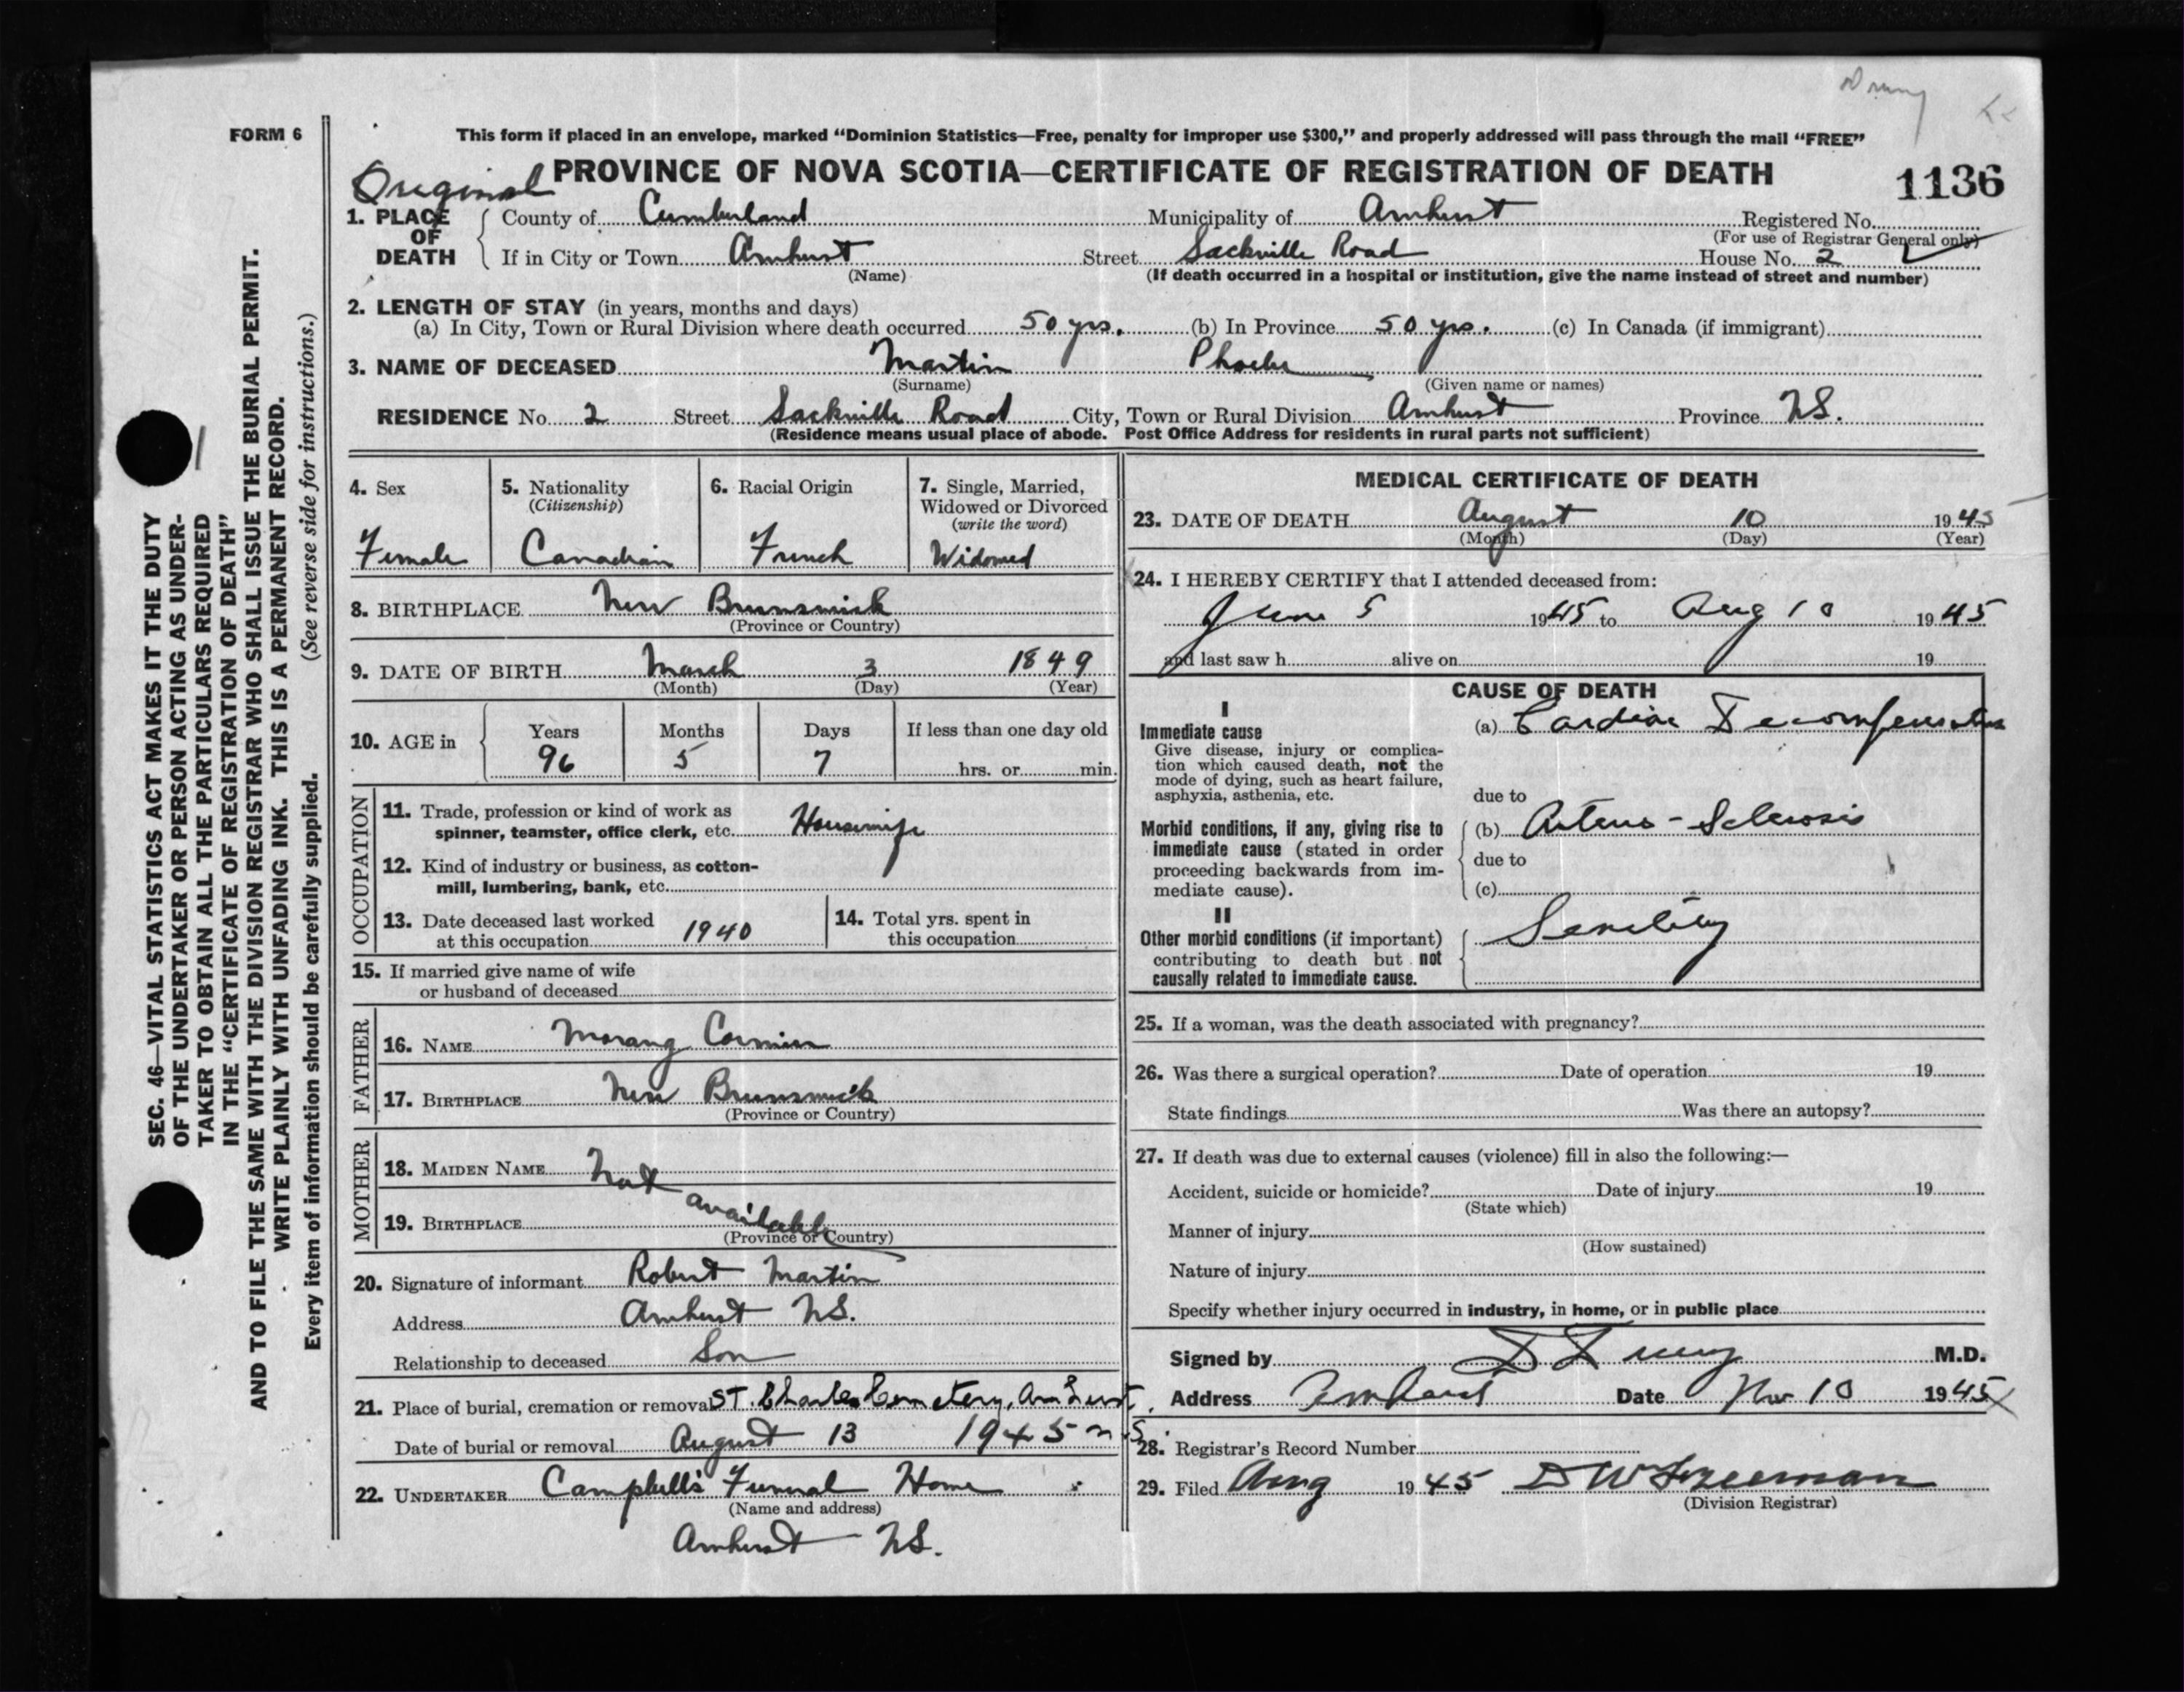 FORM 6
This form if placed in an envelope, marked "Dominion Statistics—Free, penalty for improper use $300," and properly addressed will pass through the mail "FREE"
Original PROVINCE OF NOVA SCOTIA—CERTIFICATE OF REGISTRATION OF DEATH 1136
1. PLACE OF DEATH
County of Cumberland Municipality of Amherst Registered No.
(For use of Registrar General only)
If in City or Town Amherst Street Sackville Road House No. 2
(Name) (If death occurred in a hospital or institution, give the name instead of street and number)
2. LENGTH OF STAY (in years, months and days)
(a) In City, Town or Rural Division where death occurred 50 yrs. (b) In Province 50 yrs. (c) In Canada (if immigrant)
3. NAME OF DECEASED Martin Phoebe
(Surname) (Given name or names)
RESIDENCE No. 2 Street Sackville Road City, Town or Rural Division Amherst Province N.S.
(Residence means usual place of abode. Post Office Address for residents in rural parts not sufficient)
4. Sex
Female
5. Nationality
(Citizenship)
Canadian
6. Racial Origin
French
7. Single, Married,
Widowed or Divorced
(write the word)
Widowed
8. BIRTHPLACE New Brunswick
(Province or Country)
9. DATE OF BIRTH March 3 1849
(Month) (Day) (Year)
10. AGE in
Years Months Days If less than one day old
96 5 7 hrs. or min.
OCCUPATION
11. Trade, profession or kind of work as
spinner, teamster, office clerk, etc. Housewife
12. Kind of industry or business, as cotton-
mill, lumbering, bank, etc.
13. Date deceased last worked
at this occupation 1940
14. Total yrs. spent in
this occupation
15. If married give name of wife
or husband of deceased
FATHER
16. NAME Morang Cormier
17. BIRTHPLACE New Brunswick
(Province or Country)
MOTHER
18. MAIDEN NAME Not
available
19. BIRTHPLACE
(Province or Country)
20. Signature of informant Robert Martin
Address Amherst N.S.
Relationship to deceased Son
21. Place of burial, cremation or removal ST. Charles Cemetery, Amherst, N.S.
Date of burial or removal August 13 1945
22. UNDERTAKER Campbell's Funeral Home
(Name and address)
Amherst N.S.
MEDICAL CERTIFICATE OF DEATH
23. DATE OF DEATH August 10 1945
(Month) (Day) (Year)
24. I HEREBY CERTIFY that I attended deceased from:
June 5 1945 to Aug 10 1945
and last saw h alive on 19
CAUSE OF DEATH
I
Immediate cause (a) Cardiac Decompensation
Give disease, injury or complica-
tion which caused death, not the
mode of dying, such as heart failure,
asphyxia, asthenia, etc.
due to
Morbid conditions, if any, giving rise to
immediate cause (stated in order
proceeding backwards from im-
mediate cause).
(b) Arterio-Sclerosis
due to
(c)
II
Other morbid conditions (if important)
contributing to death but not
causally related to immediate cause.
Senility
25. If a woman, was the death associated with pregnancy?
26. Was there a surgical operation? Date of operation 19
State findings Was there an autopsy?
27. If death was due to external causes (violence) fill in also the following:—
Accident, suicide or homicide? Date of injury 19
(State which)
Manner of injury
(How sustained)
Nature of injury
Specify whether injury occurred in industry, in home, or in public place
Signed by M.D.
Address Amherst Date Nov 10 1945
28. Registrar's Record Number
29. Filed Aug 1945 D W Freeman
(Division Registrar)
SEC. 46—VITAL STATISTICS ACT MAKES IT THE DUTY
OF THE UNDERTAKER OR PERSON ACTING AS UNDER-
TAKER TO OBTAIN ALL THE PARTICULARS REQUIRED
IN THE "CERTIFICATE OF REGISTRATION OF DEATH"
AND TO FILE THE SAME WITH THE DIVISION REGISTRAR WHO SHALL ISSUE THE BURIAL PERMIT.
WRITE PLAINLY WITH UNFADING INK. THIS IS A PERMANENT RECORD.
Every item of information should be carefully supplied. (See reverse side for instructions.)